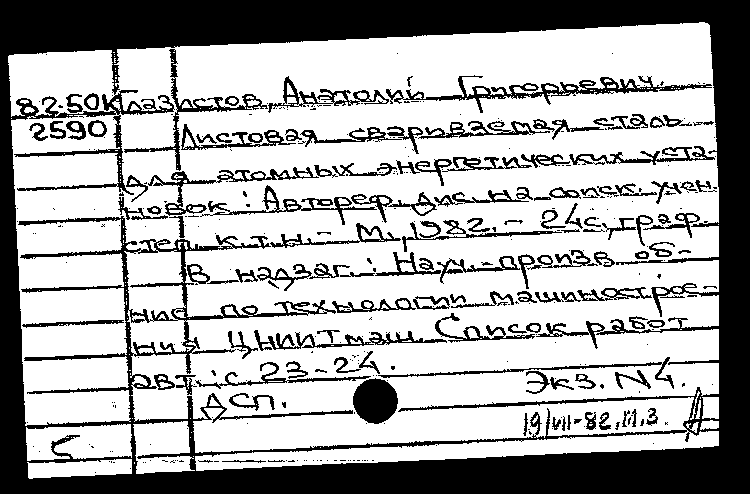 82-50К Глазистов, Анатолий Григорьевич.
2590 Листовая свариваемая сталь
для атомных энергетических уста-
новок : Автореф. дис. на соиск. учен.
степ. к.т.н. - М., 1982. - 24с., граф.
В надзаг. : Науч.-произв. об-
ние по технологии машинострое-
ния ЦНИИТмаш. Список работ
авт.: с. 23-24.
Экз. N4.
ДСП.
19/VII-82. М.З.